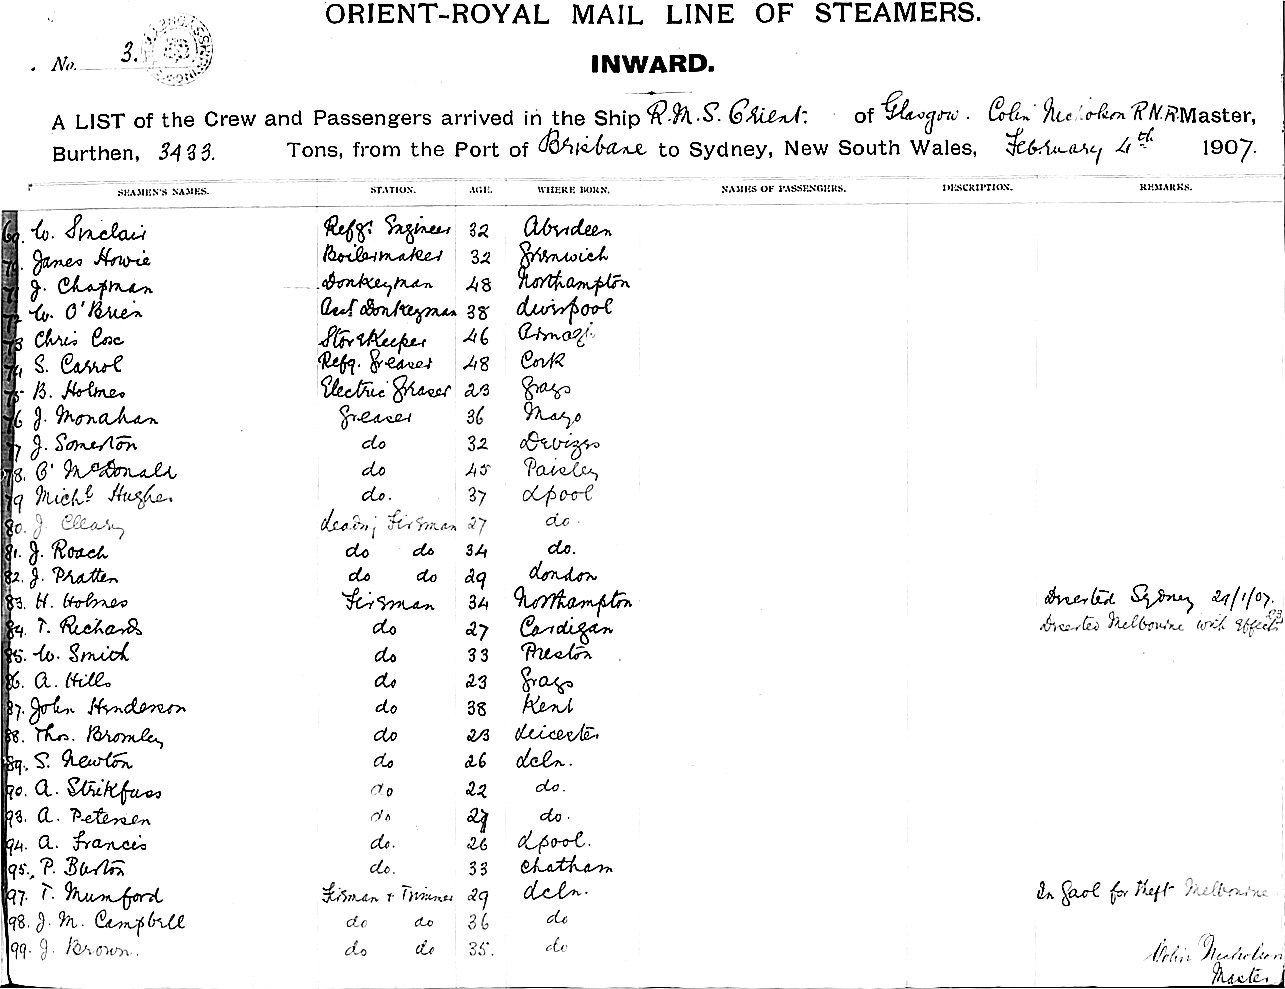 ORIENT-ROYAL MAIL LINE OF STEAMERS.
No. 3.
INWARD.
A LIST of the Crew and Passengers arrived in the Ship R.M.S. Orient. of Glasgow. Colin Nicholson R.N.R Master,
Burthen, 3433. Tons, from the Port of Brisbane to Sydney, New South Wales, February 4th 1907.
SEAMEN'S NAMES. STATION. AGE. WHERE BORN. NAMES OF PASSENGERS. DESCRIPTION. REMARKS.
69. W. Sinclair Refg: Engineer 32 Aberdeen
70. James Howie Boilermaker 32 Greenwich
71 J. Chapman Donkeyman 48 Northampton
72 W. O'Brien Asst Donkeyman 38 Liverpool
73 Chris Coe Storekeeper 46
74 S. Carrol Refg. Greaser 48 Cork
75 B. Holmes Electric Greaser 23 Grays
76 J. Monahan Greaser 36 Mayo
77 J. Somerton do 32 Devizes
78. McDonald do 45 Paisley
79 Michl Hughes do. 37 Lpool
80. J. Cleary Leadg Fireman 27 do.
81. J. Roach do do 34 do.
82. J. Pratten do do 29 London
83. H. Holmes Fireman 34 Northampton Deserted Sydney 21/1/07.
84. T. Richards do 27 Cardigan Deserted Melbourne with Effects
85. W. Smith do 33 Preston
86. A. Hills do 23 Grays
87. John Henderson do 38 Kent
88. Thos. Bromley do 23 Leicester
89. S. Newton do 26 Ldn.
90. A. Strikfuss do 22 do.
93. A. Petersen do do.
94. A. Francis do. 26 Lpool.
95. P. Burton do. 33 Chatham
97. T. Mumford Fireman & Trimmer 29 Ldn. In Gaol for theft Melbourne
98. J. M. Campbell do do 36 do
99. J. Brown. do do 35. do
Colin Nicholson
Master